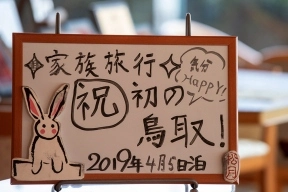 ✧家族旅行✧
気分
HAPPY!
㊗初の
鳥取!
2019年4月5日泊